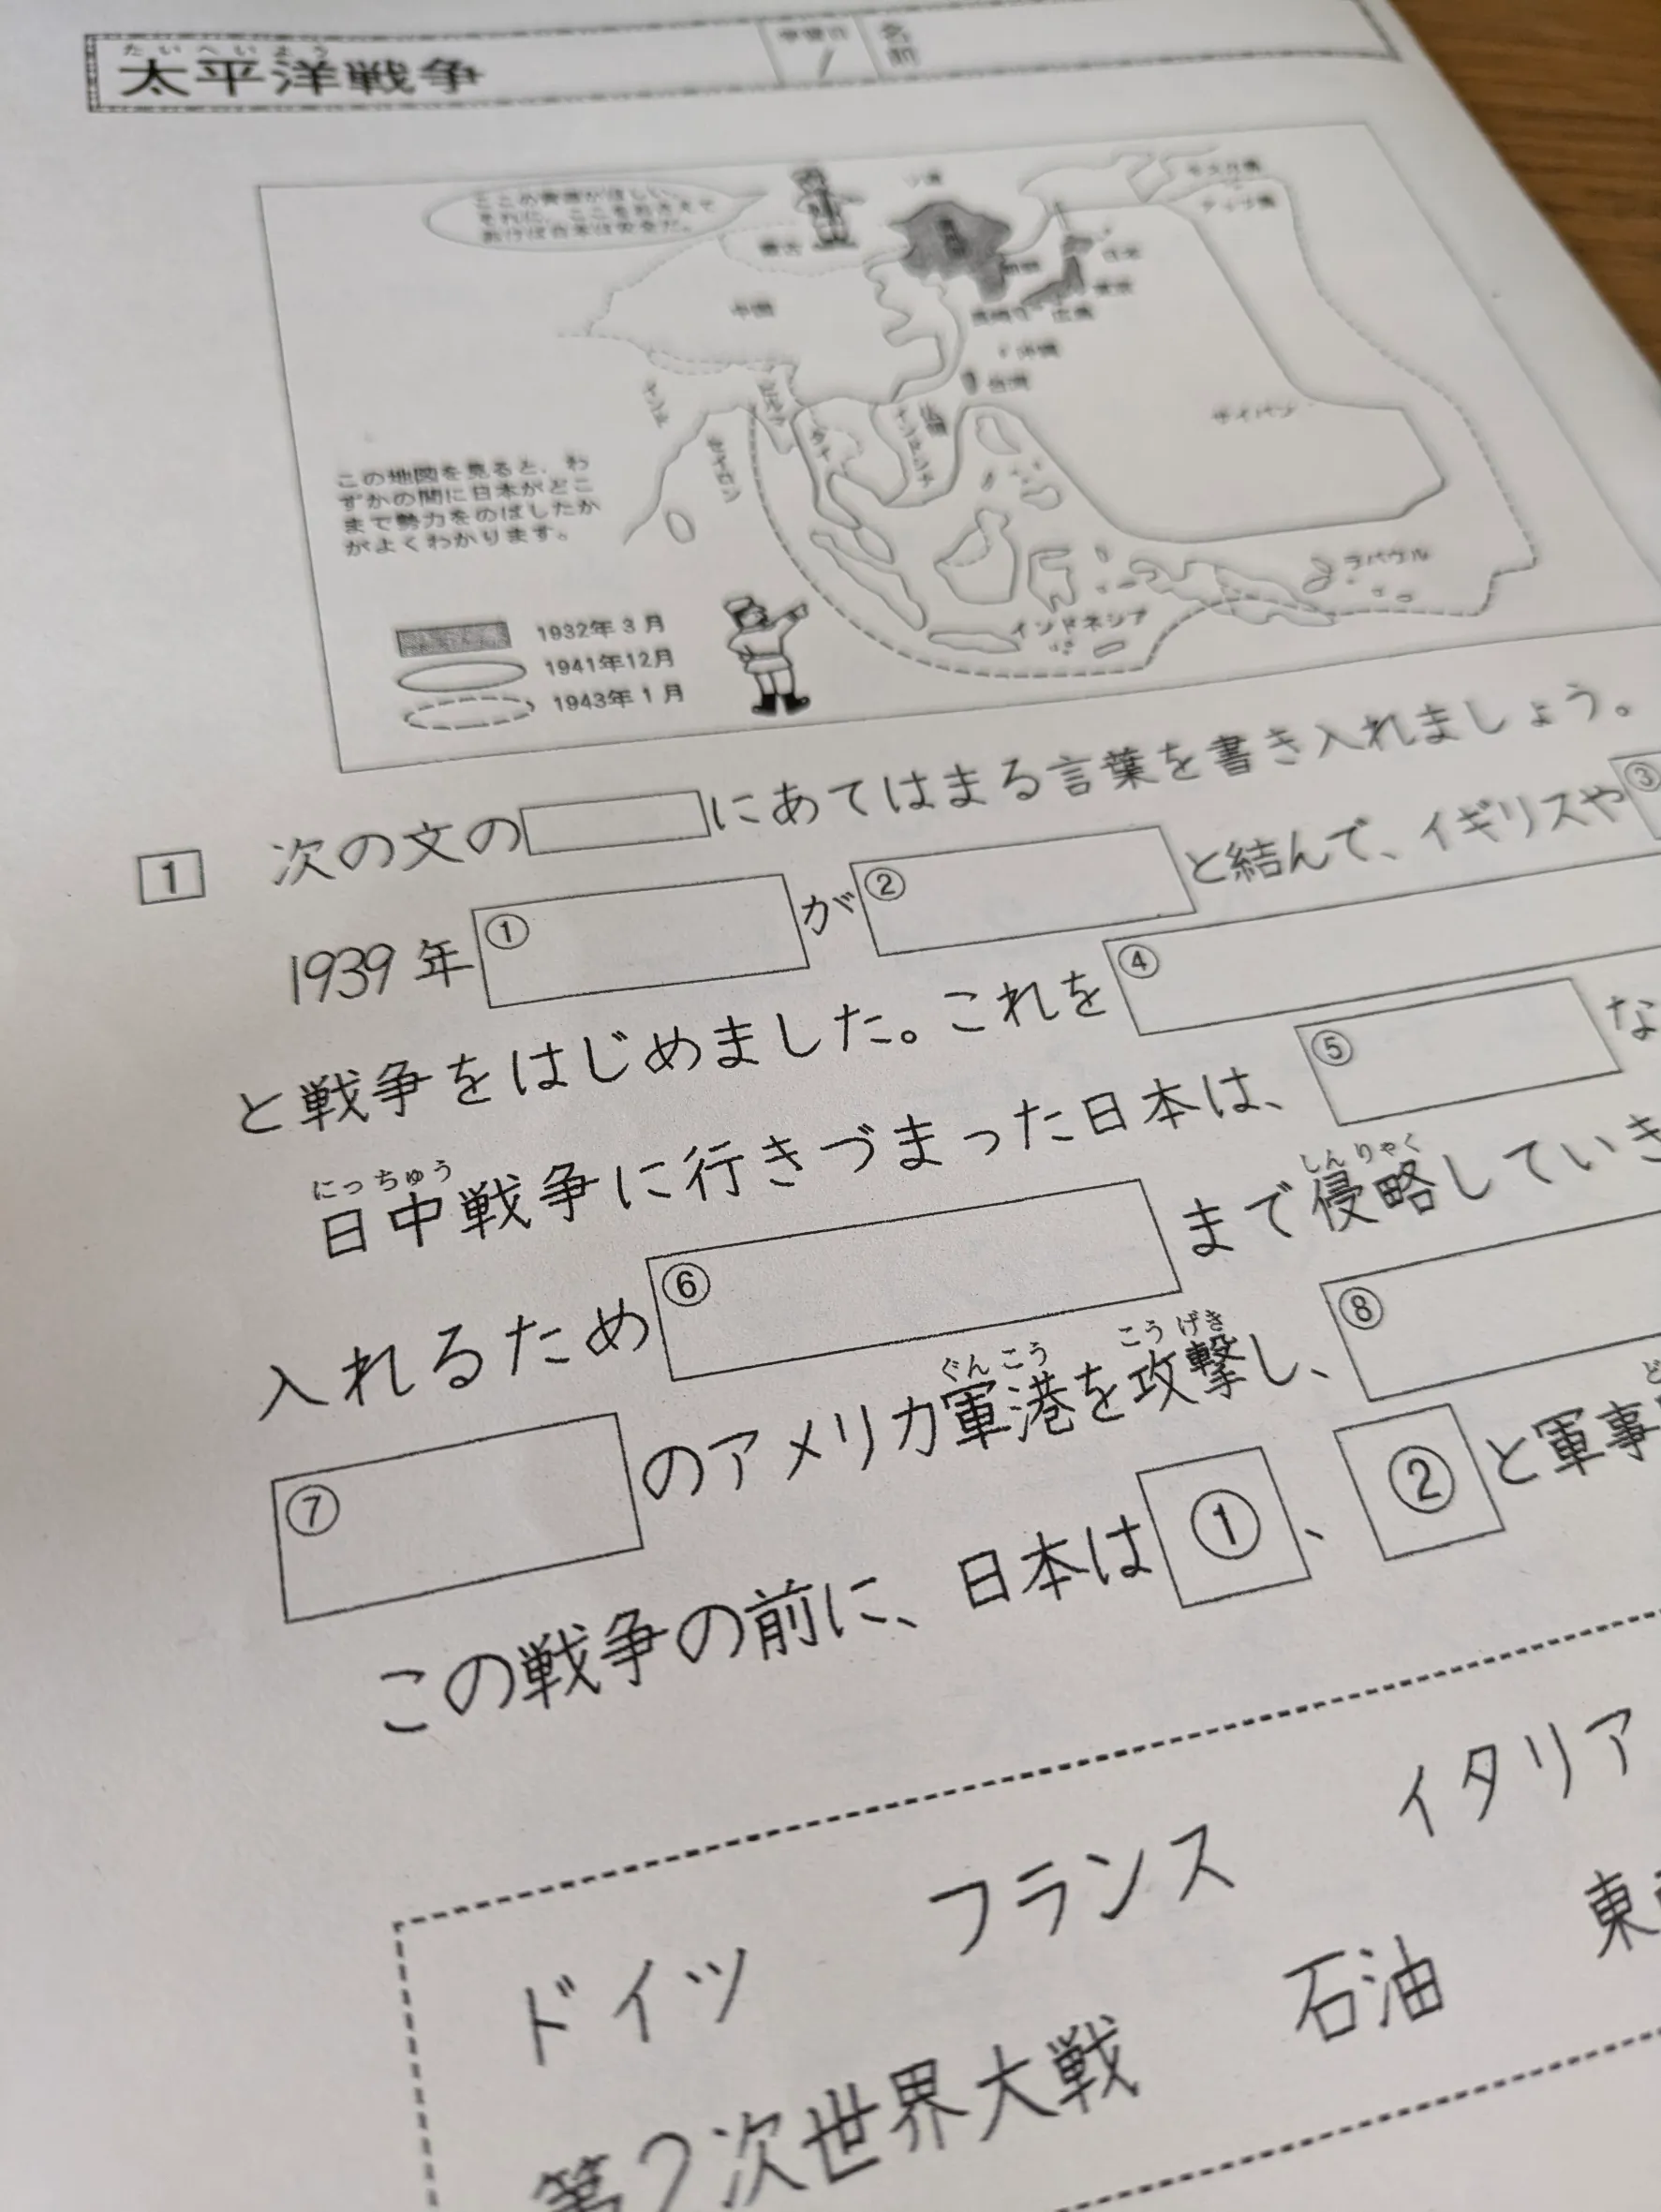 たいへいよう
太平洋戦争
学習日
/
名前
ここの資源がほしい。
それに、ここをおさえて
おけば日本は安全だ。
ソ連
蒙古
中国
広島
沖縄
台湾
サイパン
ラバウル
インドネシア
この地図を見ると、わ
ずかの間に日本がどこ
まで勢力をのばしたか
がよくわかります。
1932年3月
1941年12月
1943年1月
1 次の文の にあてはまる言葉を書き入れましょう。
1939年 ① が ② と結んで、イギリスや ③
と戦争をはじめました。これを ④
にっちゅう
日中戦争に行きづまった日本は、 ⑤ な
しんりゃく
入れるため ⑥ まで侵略していき
ぐんこう こうげき
⑦ のアメリカ軍港を攻撃し、 ⑧
この戦争の前に、日本は ① 、 ② と軍事
ドイツ フランス イタリア
第2次世界大戦 石油 東